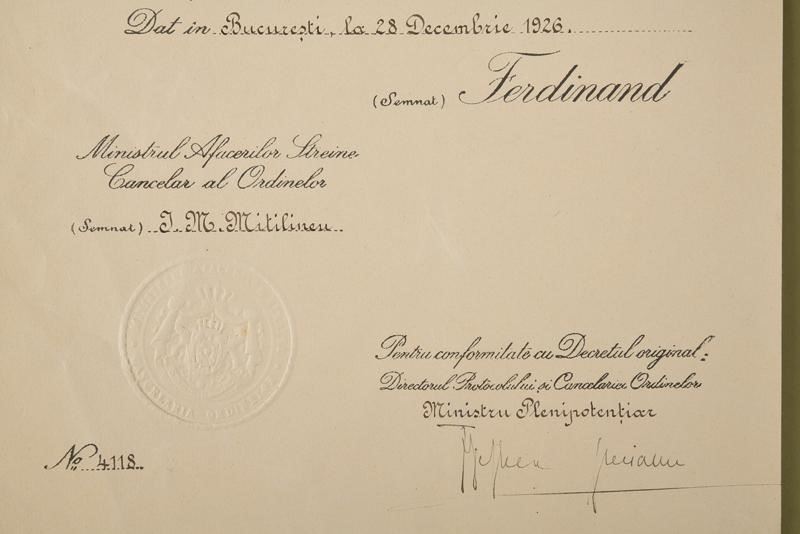 Dat in București, la 28 Decembrie 1926.
(Semnat) Ferdinand
Ministrul Afacerilor Streine
Cancelar al Ordinelor
(Semnat) I. M. Mitilineu
Pentru conformitate cu Decretul original:
Directorul Protocolului și Cancelariei Ordinelor
Ministru Plenipotențiar
No. 4118